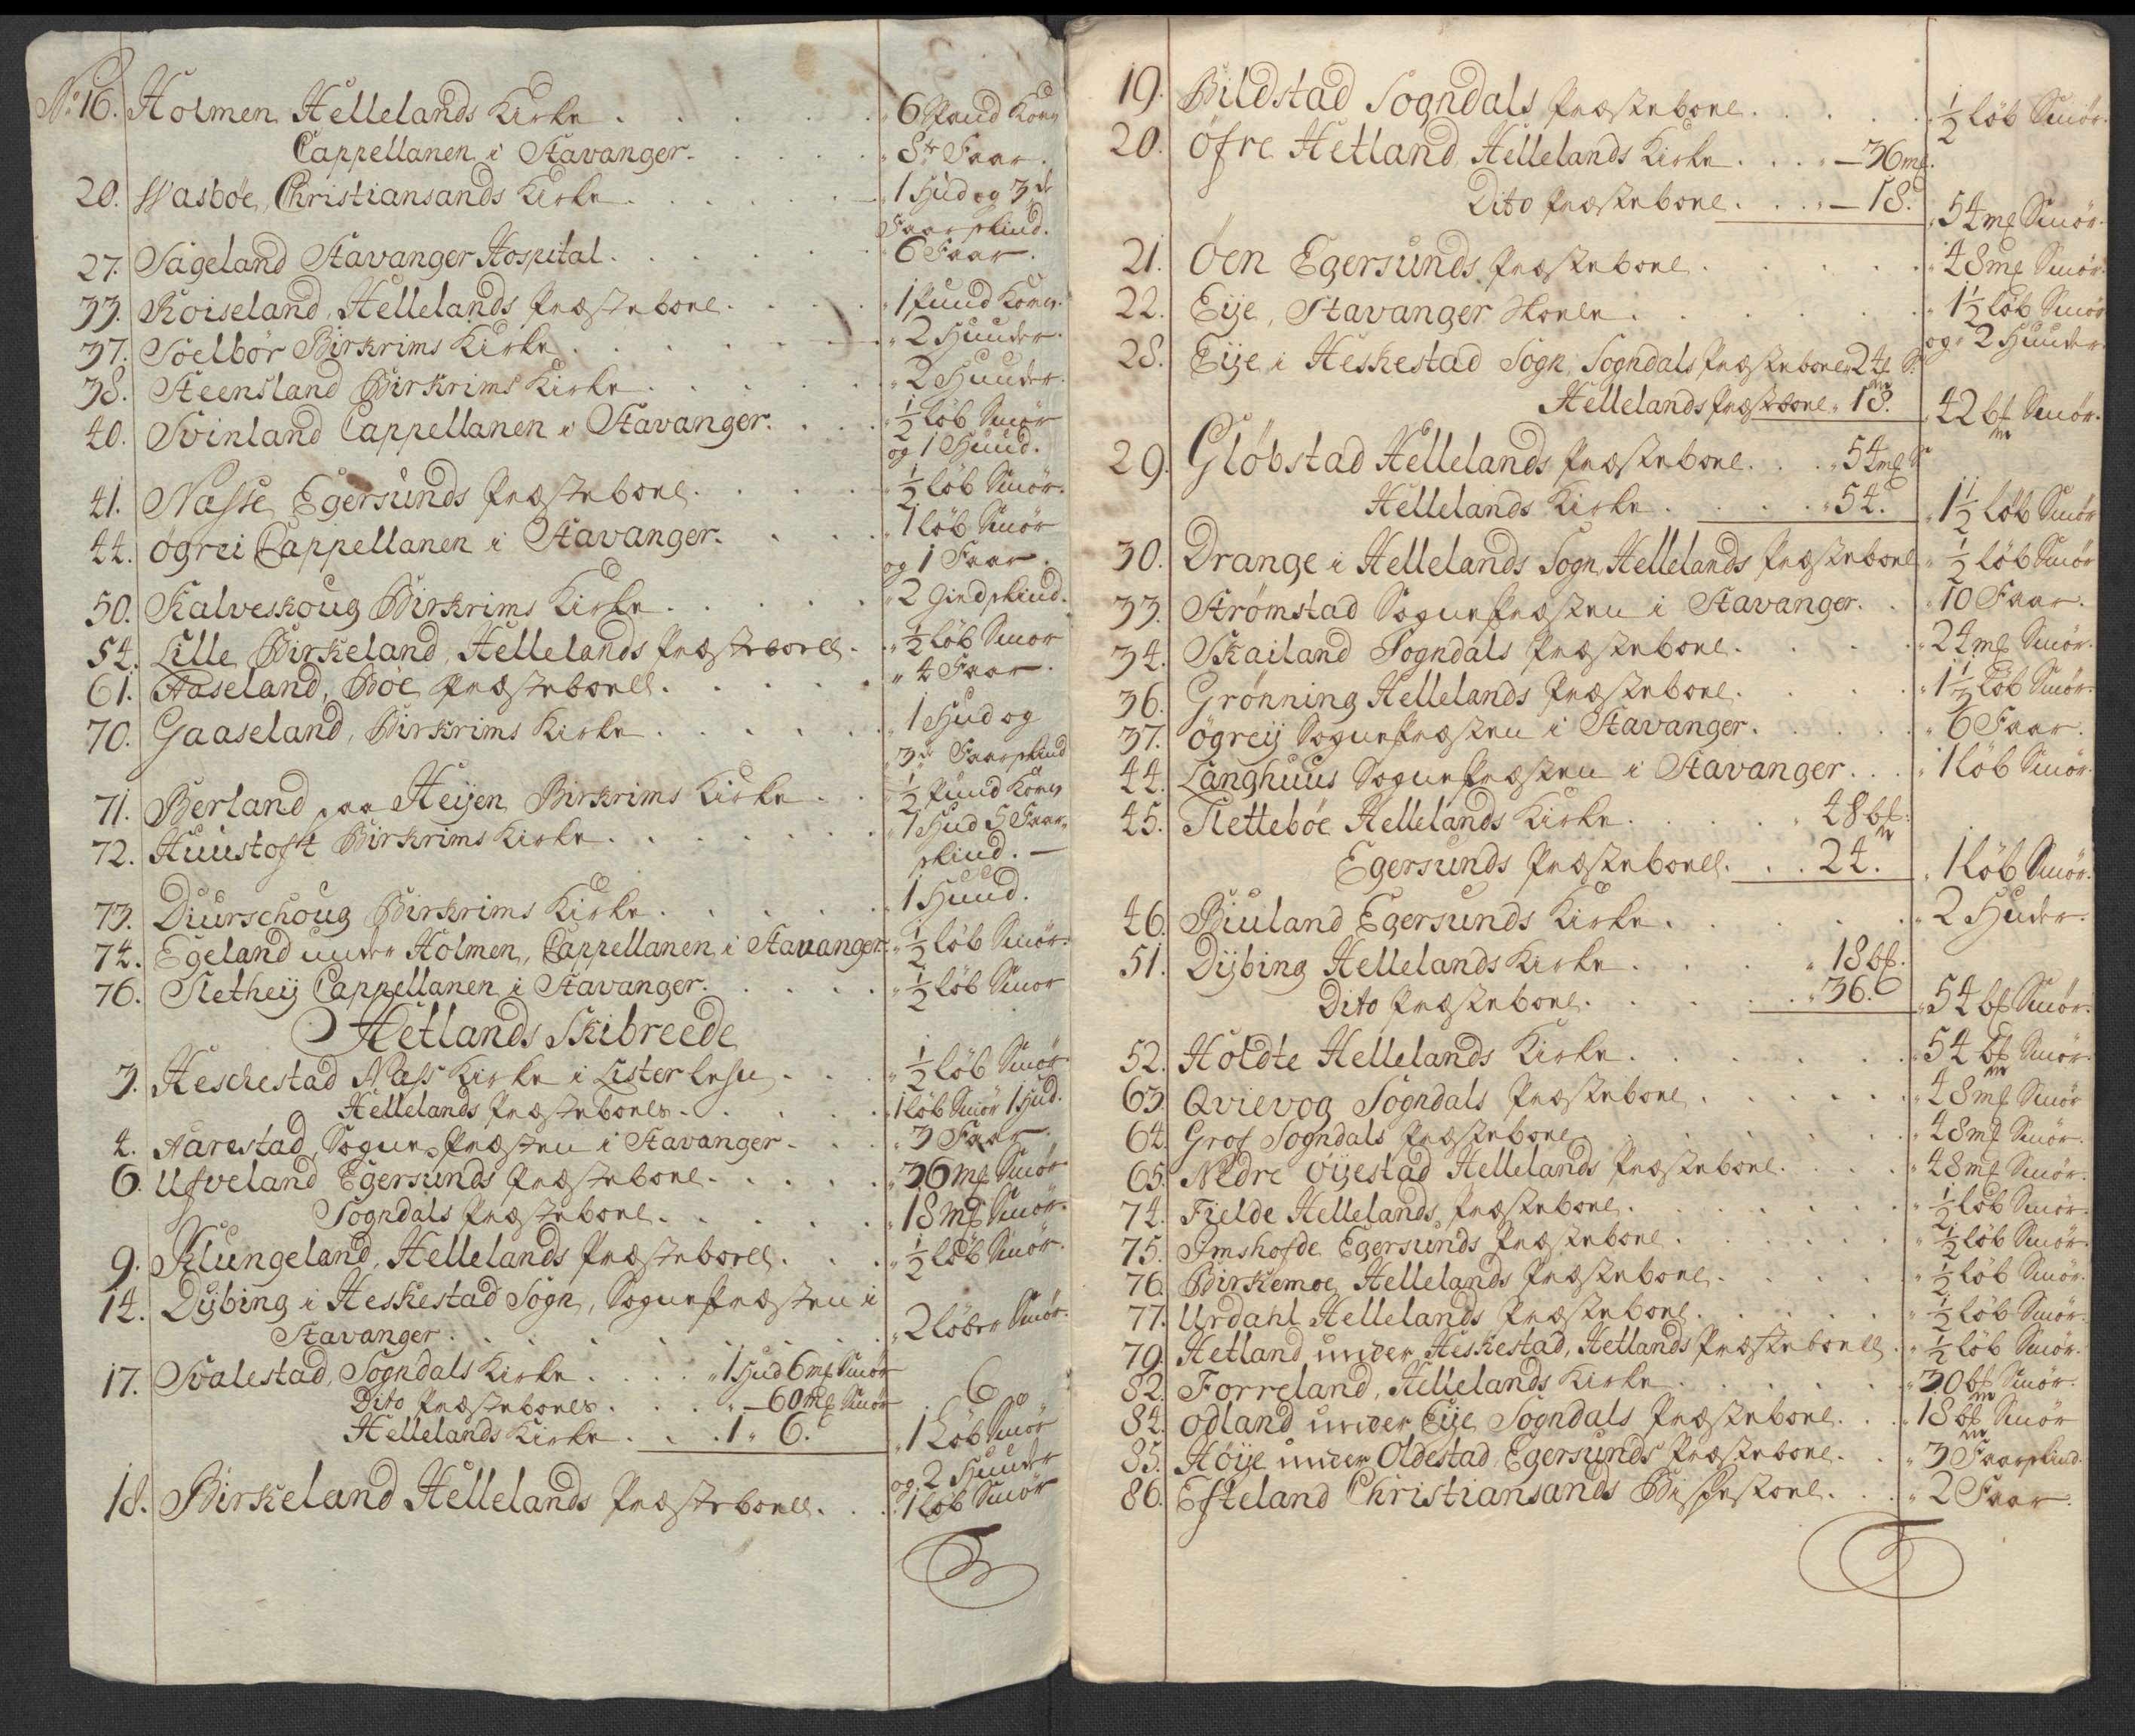 No: 16. Holmen Hellelands Kirke . . . . . 6 Pund Korn
Cappellanen i Stavanger. . . . . 8te Faar.
20. Wasbøe, Christiansands Kirke . . . . . 1 Hud og 3de
Faarskind.
27. Sageland Stavanger Hospital. . . . . 6 Faar.
33. Koiseland, Hellelands Præsteborel. . . . 1 Pund Korn.
37. Soelbør Birkrims Kirke . . . . . 2 Huuder.
38. Steensland Birkrims Kirke . . . . . 2 Huuder.
40. Svinland Cappellanen i Stavanger. . . . ½ løb Smør
og 1 Huud.
41. Nasse, Egersunds Præsteborel. . . . . ½ løb Smør.
44. øgrei Cappellanen i Stavanger. . . . 1 løb Smør
og 1 Faar.
50. Kalveskoug Birkrims Kirke . . . . . 2 Giedskind.
54. Lille Birkeland, Hellelands Præsteborell. . ½ løb Smør
61. Aaseland, Bøe Præsteborell. . . . . 4 Faar.
70. Gaaseland, Birkrims Kirke . . . . . 1 Hud og
3de Faarskind
71. Berland paa Heijen Birkrims Kirke . . ½ Pund Korn
72. Huustoft Birkrims Kirke . . . . . 1 Hud 5 Faar-
skind. —
73. Diurschoug Birkrims Kirke . . . . . 1 Huud.
74. Egeland under Holmen, Cappellanen i Stavanger. ½ løb Smør.
76. Sletheij Cappellanen i Stavanger. . . . . ½ løb Smør
Hetlands Skibreede
3. Heschestad Næss Kirke i Lister Lehn . . . ½ løb Smør
Hellelands Præsteborel. . . . . 1 løb Smør 1 Hud.
4. Aarestad, Sogne Præsten i Stavanger . . . 3 Faar.
6. Ufveland Egersunds Præsteborel. . . . . 36 mk Smør
Sogndals Præsteborel. . . . . 18 mk Smør.
9. Klungeland, Hellelands Præsteborell. . . . ½ løb Smør.
14. Dybing i Heskestad Sogn, Sognepræsten i
Stavanger. . . . . . 2 løber Smør.
17. Svalestad, Sogndals Kirke . . . . 1 Hud 6 mk Smør
Dito Præsteborel. . . . — 60 mk Smør
Hellelands Kirke . . . 1 " 6. 1 Løb Smør
og 2 Huuder
18. Birkeland Hellelands Præsteborell. . . 1 løb Smør
19. Bildstad Sogndals Præsteborel. . . . . ½ løb Smør.
20. öfre Hetland, Hellelands Kirke . . . . — 36 mk.
Dito Præsteborel. . . . — 18. 54 mk Smør.
21. Öen Egersunds Præsteborel. . . . . 48 mk Smør.
22. Eije, Stavanger Skole . . . . . 1½ løb Smør
og 2 Huuder.
28. Eije i Heskestad Sogn, Sogndals Præsteborel 24 S.
Hellelands Præsteborel. 18. 42 bf Smør.
29. Gløbstad Hellelands Præsteborel. . . . 54 mk S.
Hellelands Kirke . . . . . 54. 1½ løb Smør
30. Drange i Hellelands Sogn, Hellelands Præsteborel ½ løb Smør
33. Strømstad Sognepræsten i Stavanger. . 10 Faar.
34. Skailand Sogndals Præsteborel. . . . . 24 mk Smør.
36. Grønning Hellelands Præsteborel. . . . . 1½ løb Smør.
37. øgreij Sognepræsten i Stavanger. . . . . 6 Faar.
44. Langhuus Sognepræsten i Stavanger. . . 1 løb Smør.
45. Slettebøe Hellelands Kirke . . . . . 48 bf.
Egersunds Præsteborel. . . 24. 1 løb Smør.
46. Biuland Egersunds Kirke . . . . . 2 Huder.
51. Dijbing Hellelands Kirke . . . . 18 bf.
Dito Præsteborel. . . . . 36. 54 bf Smør.
52. Holdte Hellelands Kirke . . . . . 54 bf Smør.
63. Qvievog Sogndals Præsteborel . . . . . 48 mk Smør
64. Grof Sogndals Præsteborel . . . . . 48 mk Smør.
65. Nedre Öijestad Hellelands Præsteborel. . . . 48 mk Smør.
74. Fielde Hellelands Præsteborel. . . . . ½ løb Smør.
75. Imshofde Egersunds Præsteborel . . . . . ½ løb Smør.
76. Birkemoe Hellelands Præsteborel . . . . . ½ løb Smør.
77. Urdahl Hellelands Præsteborel . . . . . ½ løb Smør.
79. Hetland under Heskestad, Hetlands Præsteborell . ½ løb Smør.
82. Forreland, Hellelands Kirke . . . . . 30 bf Smør.
84. Odland under Eije Sogndals Præsteborel. . . 18 bf Smør
85. Høije under Oldestad, Egersunds Præsteborel. . 3 Faarskind.
86. Efteland Christiansands Bispestoel. . . . 2 Faar.